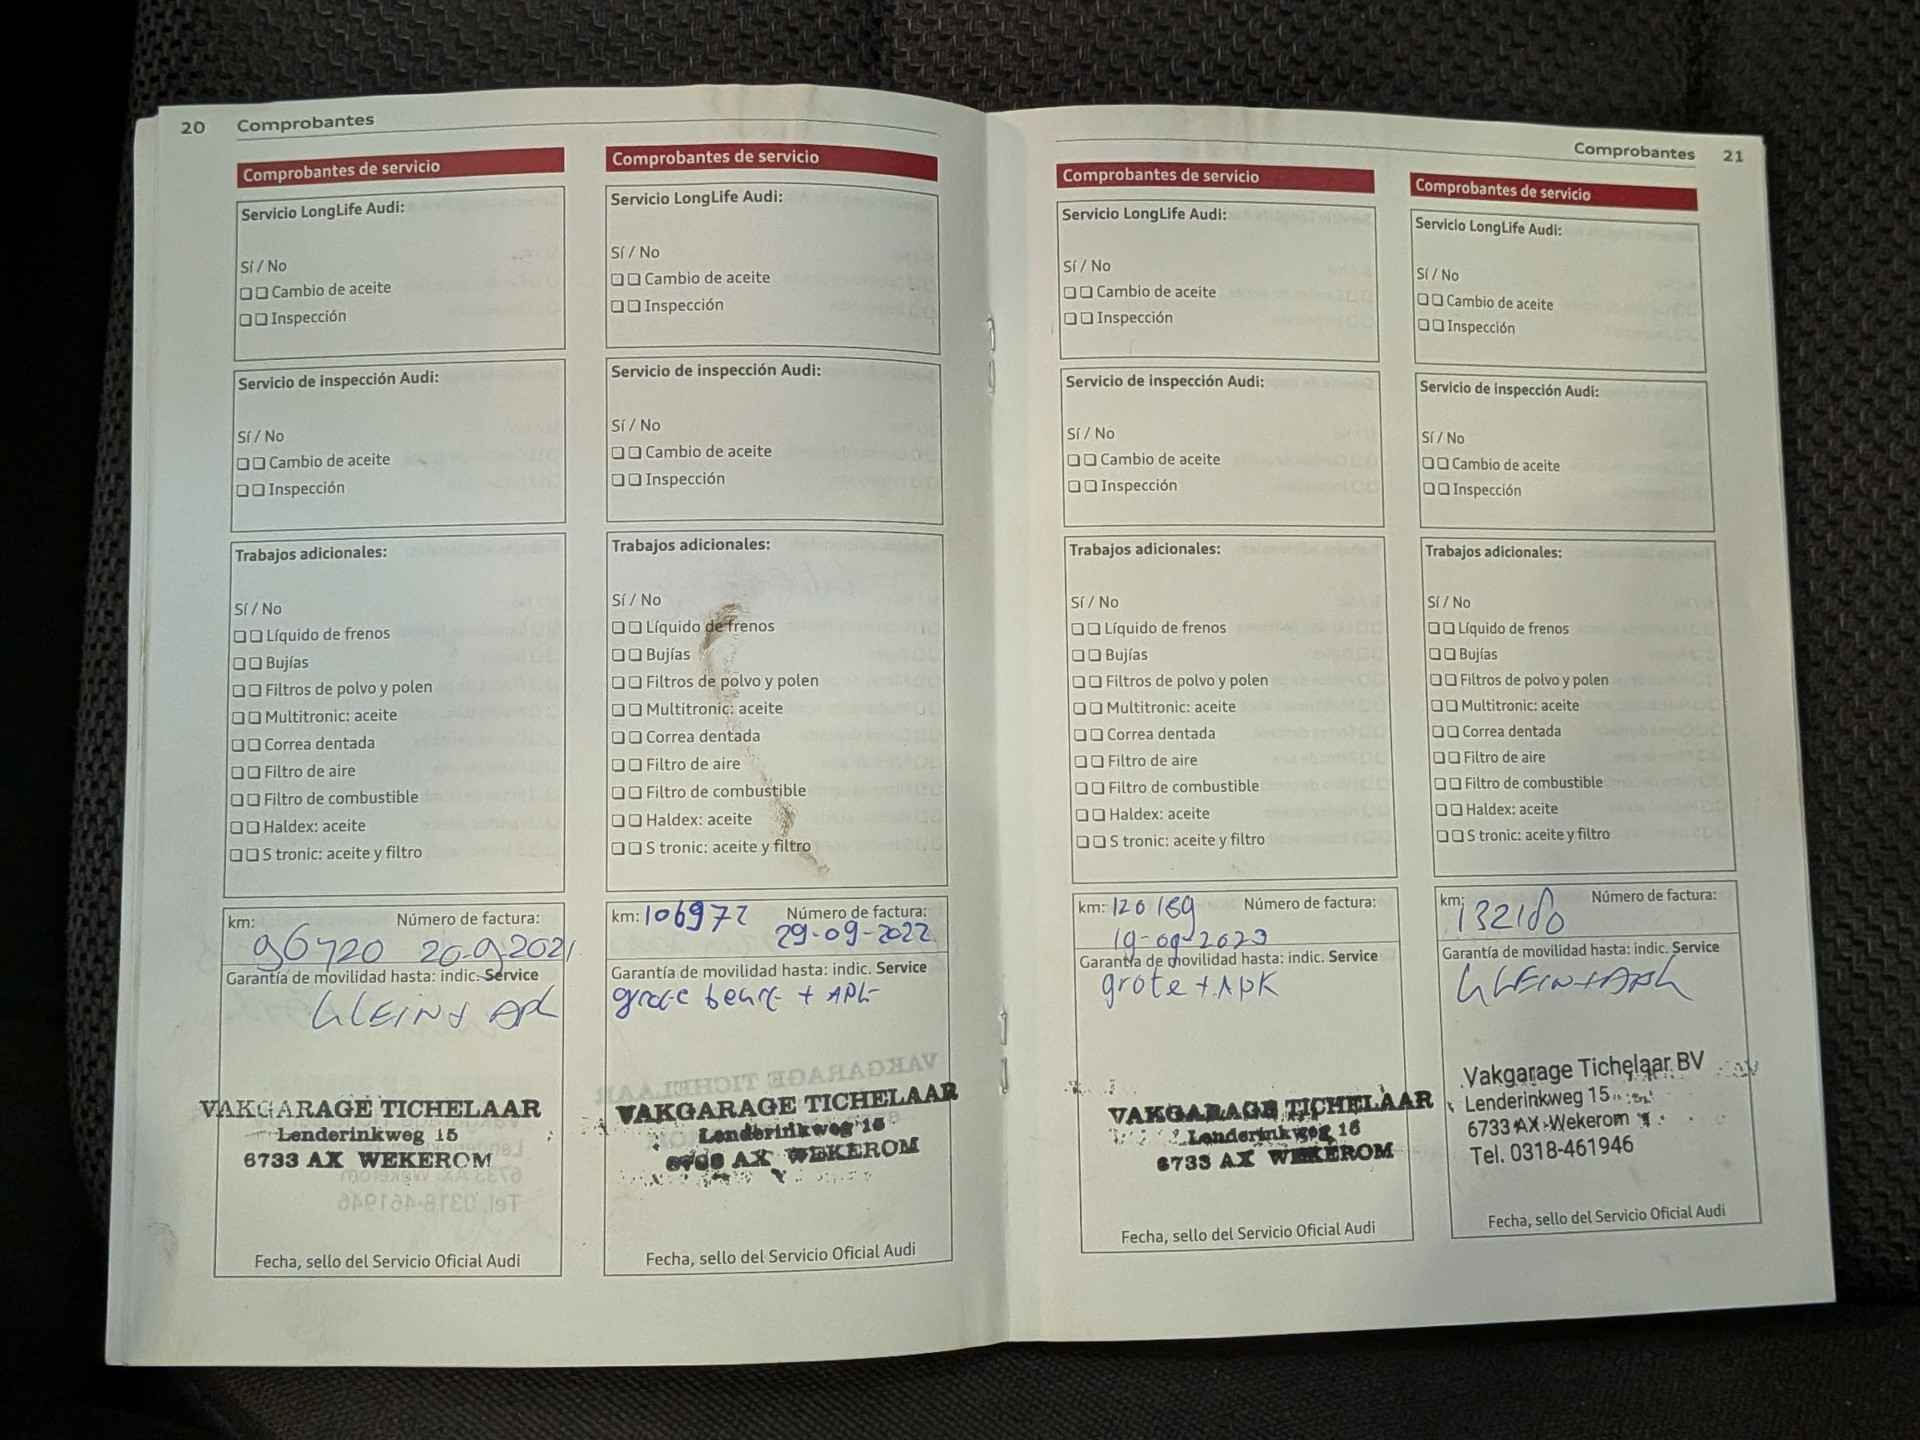 20 Comprobantes
Comprobantes de servicio
Servicio LongLife Audi:
Sí / No
❏ ❏ Cambio de aceite
❏ ❏ Inspección
Servicio de inspección Audi:
Sí / No
❏ ❏ Cambio de aceite
❏ ❏ Inspección
Trabajos adicionales:
Sí / No
❏ ❏ Líquido de frenos
❏ ❏ Bujías
❏ ❏ Filtros de polvo y polen
❏ ❏ Multitronic: aceite
❏ ❏ Correa dentada
❏ ❏ Filtro de aire
❏ ❏ Filtro de combustible
❏ ❏ Haldex: aceite
❏ ❏ S tronic: aceite y filtro
km: Número de factura:
96720 20-9-2021
Garantía de movilidad hasta: indic. Service
KLEIN + APK
VAKGARAGE TICHELAAR
Lenderinkweg 15
6733 AX WEKEROM
Fecha, sello del Servicio Oficial Audi
Comprobantes de servicio
Servicio LongLife Audi:
Sí / No
❏ ❏ Cambio de aceite
❏ ❏ Inspección
Servicio de inspección Audi:
Sí / No
❏ ❏ Cambio de aceite
❏ ❏ Inspección
Trabajos adicionales:
Sí / No
❏ ❏ Líquido de frenos
❏ ❏ Bujías
❏ ❏ Filtros de polvo y polen
❏ ❏ Multitronic: aceite
❏ ❏ Correa dentada
❏ ❏ Filtro de aire
❏ ❏ Filtro de combustible
❏ ❏ Haldex: aceite
❏ ❏ S tronic: aceite y filtro
km: 106972 Número de factura:
29-09-2022
Garantía de movilidad hasta: indic. Service
grote beurt + APK
VAKGARAGE TICHELAAR
Lenderinkweg 15
6733 AX WEKEROM
Fecha, sello del Servicio Oficial Audi
Comprobantes 21
Comprobantes de servicio
Servicio LongLife Audi:
Sí / No
❏ ❏ Cambio de aceite
❏ ❏ Inspección
Servicio de inspección Audi:
Sí / No
❏ ❏ Cambio de aceite
❏ ❏ Inspección
Trabajos adicionales:
Sí / No
❏ ❏ Líquido de frenos
❏ ❏ Bujías
❏ ❏ Filtros de polvo y polen
❏ ❏ Multitronic: aceite
❏ ❏ Correa dentada
❏ ❏ Filtro de aire
❏ ❏ Filtro de combustible
❏ ❏ Haldex: aceite
❏ ❏ S tronic: aceite y filtro
km: 120189 Número de factura:
19-09-2023
Garantía de movilidad hasta: indic. Service
grote + APK
VAKGARAGE TICHELAAR
Lenderinkweg 15
6733 AX WEKEROM
Fecha, sello del Servicio Oficial Audi
Comprobantes de servicio
Servicio LongLife Audi:
Sí / No
❏ ❏ Cambio de aceite
❏ ❏ Inspección
Servicio de inspección Audi:
Sí / No
❏ ❏ Cambio de aceite
❏ ❏ Inspección
Trabajos adicionales:
Sí / No
❏ ❏ Líquido de frenos
❏ ❏ Bujías
❏ ❏ Filtros de polvo y polen
❏ ❏ Multitronic: aceite
❏ ❏ Correa dentada
❏ ❏ Filtro de aire
❏ ❏ Filtro de combustible
❏ ❏ Haldex: aceite
❏ ❏ S tronic: aceite y filtro
km: Número de factura:
132180
Garantía de movilidad hasta: indic. Service
KLEIN + APK
Vakgarage Tichelaar BV
Lenderinkweg 15
6733 AX Wekerom
Tel. 0318-461946
Fecha, sello del Servicio Oficial Audi